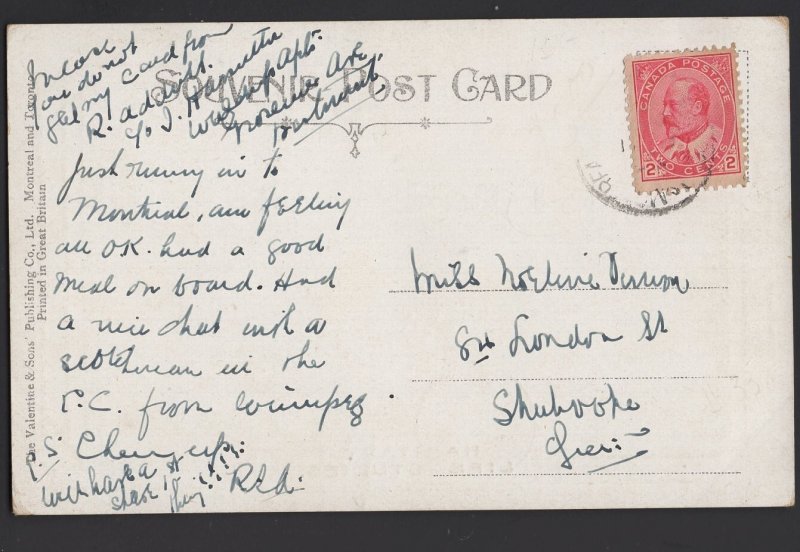 SOUVENIR POST CARD
The Valentine & Sons' Publishing Co., Ltd., Montreal and Toronto
Printed in Great Britain
CANADA POSTAGE
2 TWO CENTS 2
you do not
get my card from
R. address.
c/o J.
Apts.
Ave
Just runing in to
Montreal, am feeling
all OK. had a good
meal on board. Had
a nice chat with a
scotchman in the
P.C. from Winnipeg.
P.S. Cheer up.
will have a
R.E.A.
Miss
London St
Sherbrooke
Que: